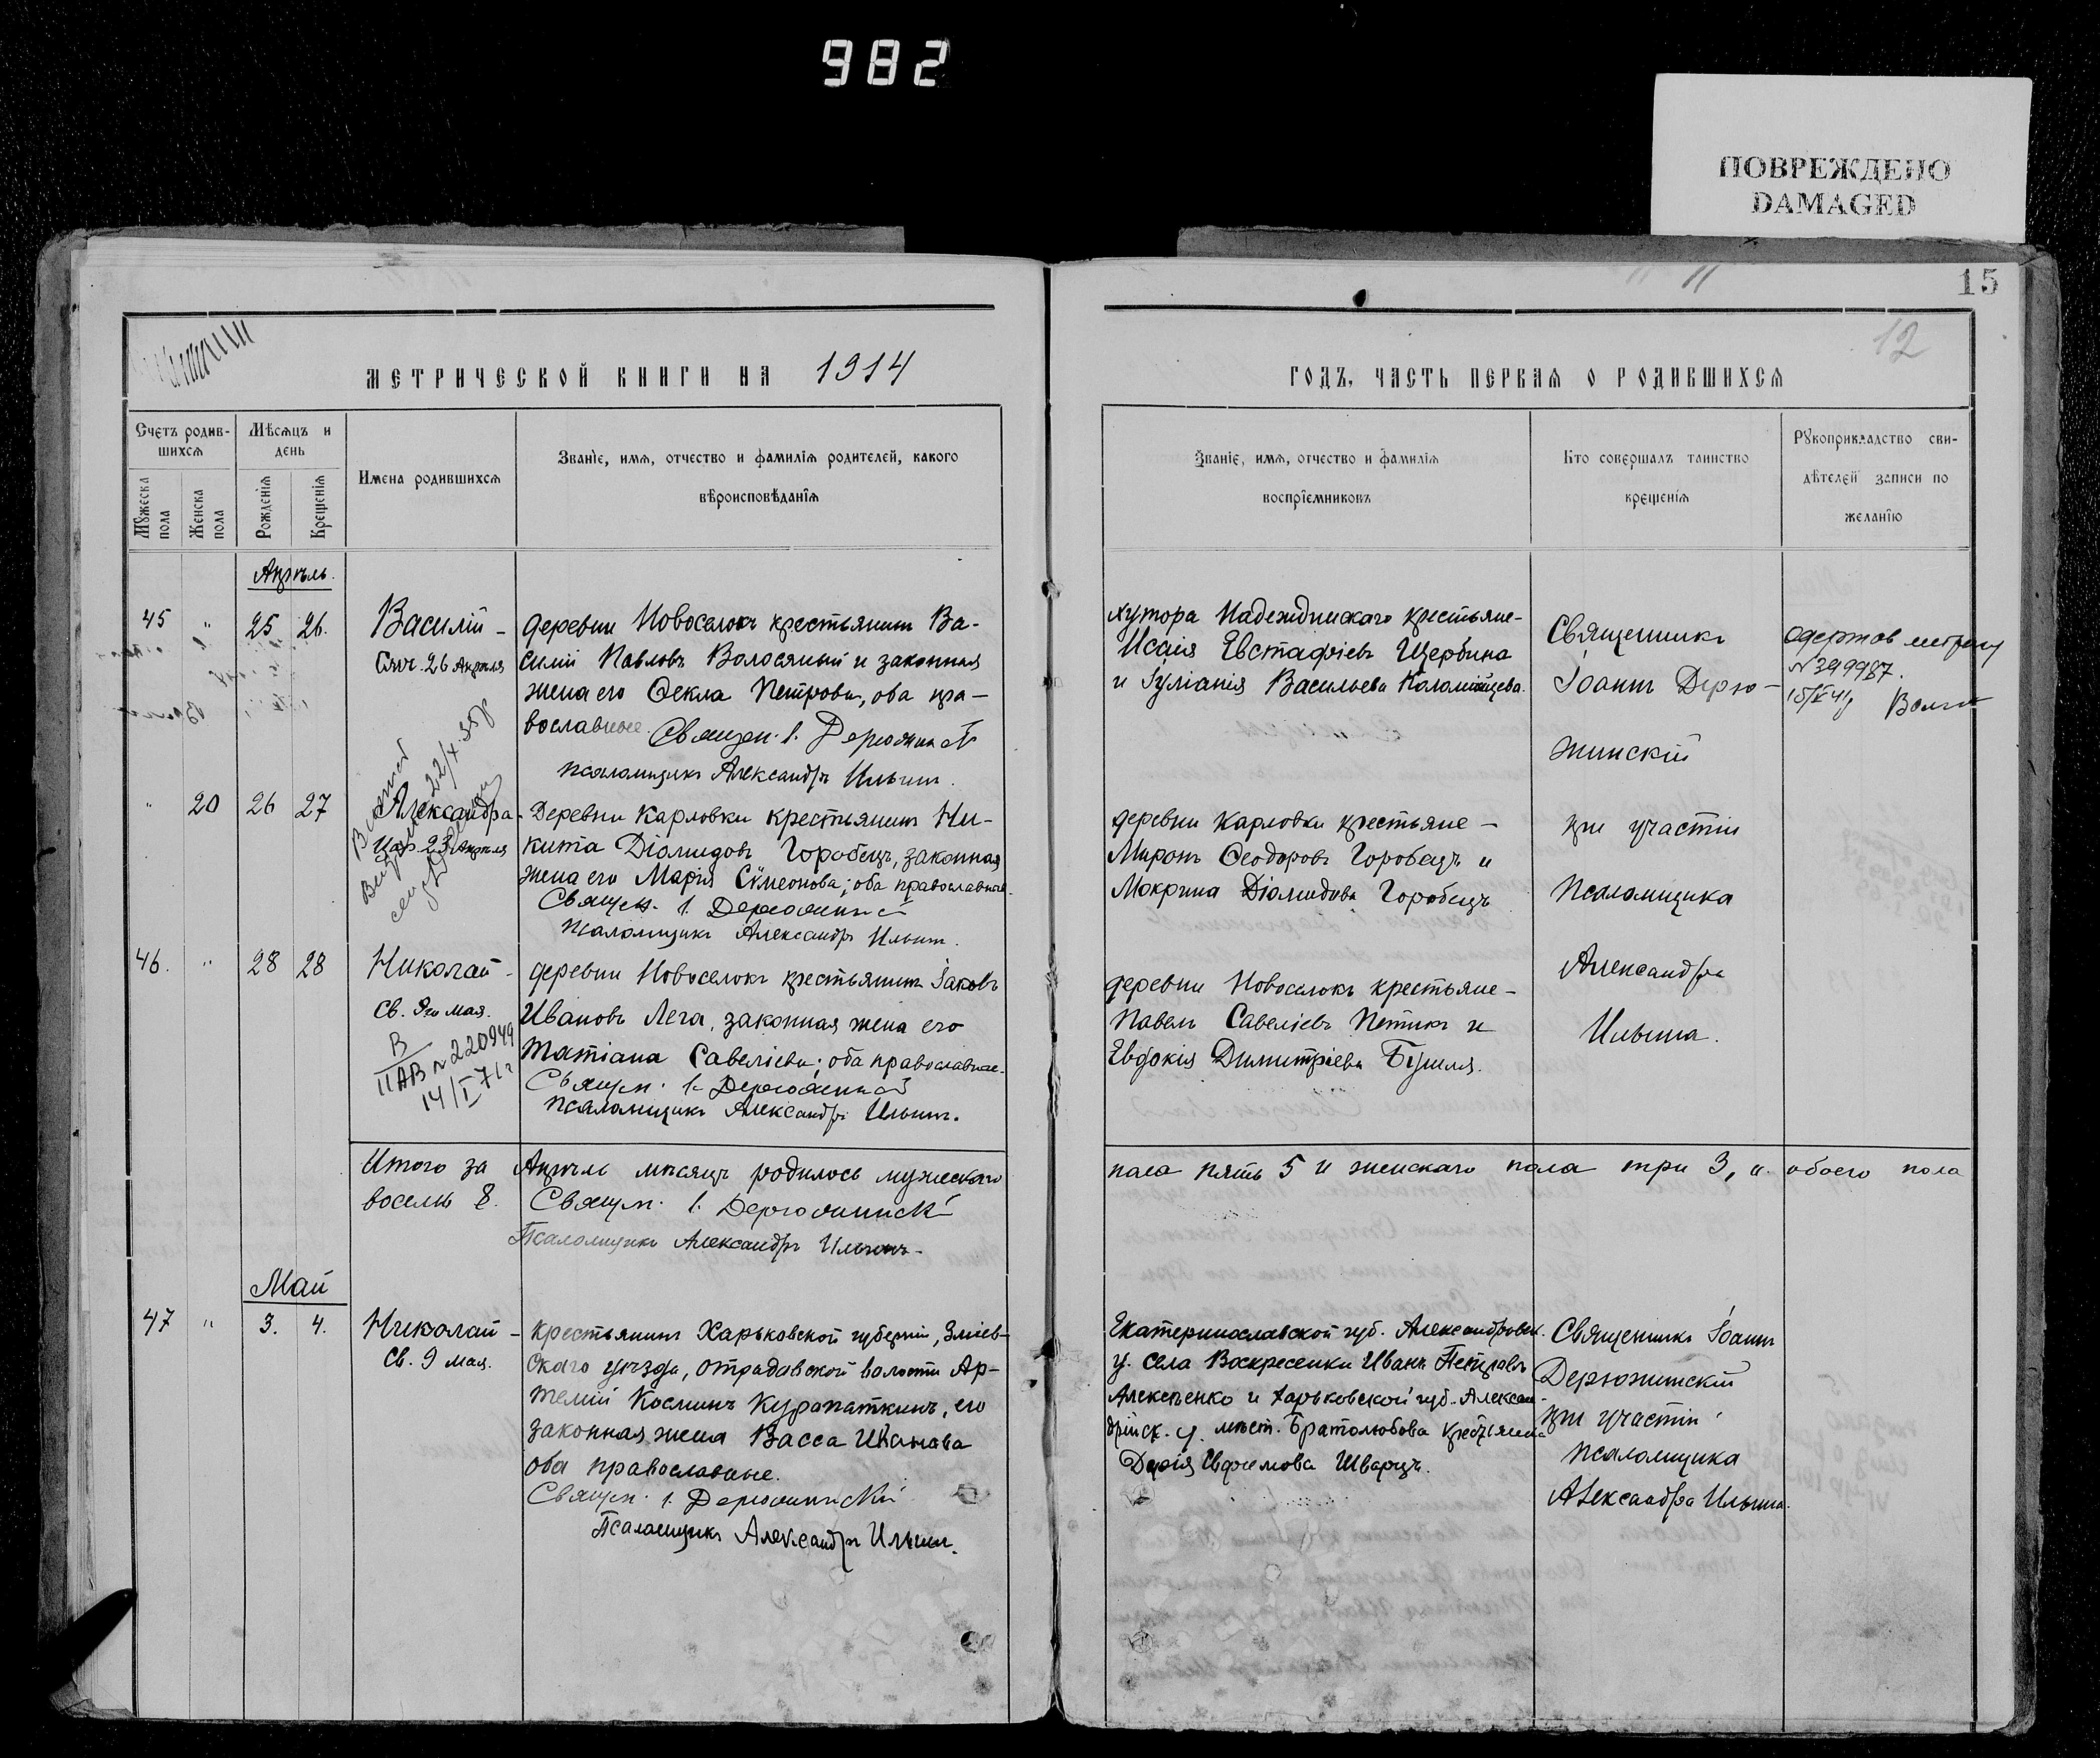 982
ПОВРЕЖДЕНО
DAMAGED
15
12
МЕТРИЧЕСКОЙ КНИГИ НА 1914
ГОДЪ, ЧАСТЬ ПЕРВАЯ О РОДИВШИХСЯ
Счетъ родив-
шихся
Мѣсяцъ и
день
Мужеска
пола
Женска
пола
Рожденія
Крещенія
Имена родившихся
Званіе, имя, отчество и фамилія родителей, какого
вѣроисповѣданія
Званіе, имя, отчество и фамилія
воспріемниковъ
Кто совершалъ таинство
крещенія
Рукоприкладство сви-
дѣтелей записи по
желанію
Апрѣль.
45 " 25 26.
Василій -
Свч. 26 Апрѣля
деревни Новоселокъ крестьянинъ Ва-
силій Павловъ Волосяный и законная
жена его Ѳекла Петрова, оба пра-
вославные. Священ. І. Дерюжинскій
псаломщикъ Александръ Ильинъ.
хутора Надеждинскаго крестьяне-
Исаія Евстафіевъ Щербина
и Іуліанія Васильева Коломійцева.
Священникъ
Іоаннъ Дерю-
жинскій
N 399987.
" 20 26 27
Александра -
Цар. 23 Апрѣля
22/X 35 р
Деревни Карловки крестьянинъ Ни-
кита Діомидовъ Горобецъ, законная
жена его Марія Сѵмеонова; оба православные.
Священ. І. Дерюжинскій
псаломщикъ Александръ Ильинъ.
деревни Карловки крестьяне -
Миронъ Ѳеодоровъ Горобецъ и
Мокрина Діомидова Горобецъ
при участіи
псаломщика
46. " 28 28
Николай -
Св. 9го мая.
В
II АВ N 220949
14/I 71г
деревни Новоселокъ крестьянинъ Іаковъ
Ивановъ Лега, законная жена его
Татіана Савеліева; оба православные.
Священ. І. Дерюжинскій
псаломщикъ Александръ Ильинъ.
деревни Новоселокъ крестьяне -
Павелъ Савеліевъ Петикъ и
Евдокія Димитріева
Александра
Ильина.
Итого за Апрѣль мѣсяцъ родилось мужескаго
пола пять 5 и женскаго пола три 3, а обоего пола
восемь 8. Священ. І. Дерюжинскій
Псаломщикъ Александръ Ильинъ.
Май
47 " 3. 4.
Николай -
Св. 9 мая.
крестьянинъ Харьковской губерніи, Зміев-
скаго уѣзда, Отрадовской волости Ар-
темій Косминъ Курапаткинъ, его
законная жена Васса Иванова
оба православные.
Священ. І. Дерюжинскій
Псаломщикъ Александръ Ильинъ.
Екатеринославской губ. Александровск.
у. села Воскресенки Иванъ Петровъ
Алексѣенко и Харьковской губ. Алексан-
дрійск. у. мѣст. Братолюбова крестьянка
Дарія Евфимова Шварцъ.
Священникъ Іоаннъ
Дерюжинскій
при участіи
псаломщика
Александра Ильина.